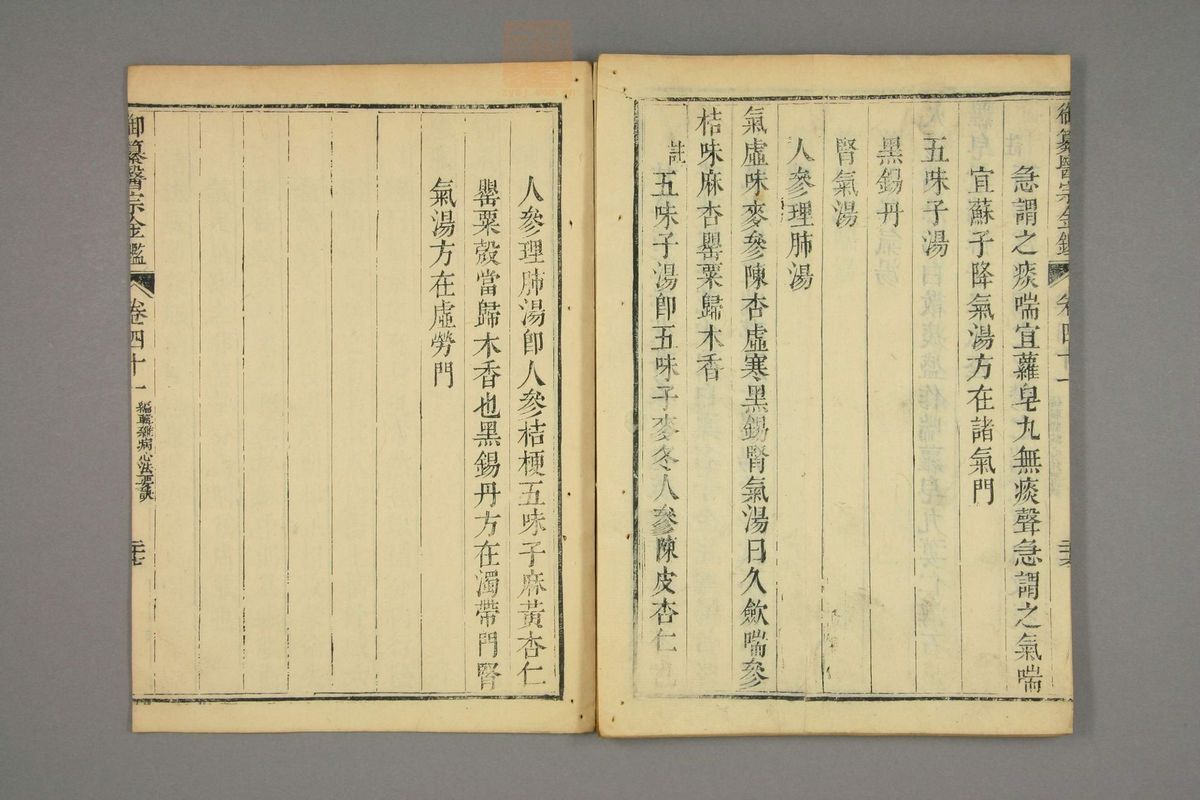 御纂醫宗金鑑
卷四十一
急謂之痰喘宜蘿皂丸無痰聲急謂之氣喘
宜蘇子降氣湯方在諸氣門
五味子湯
黑錫丹
腎氣湯
人參理肺湯
氣虛味麥參陳杏虛寒黑錫腎氣湯日久歛喘參
桔味麻杏罌粟歸木香
註
五味子湯卽五味子麥冬人參陳皮杏仁
人參理肺湯卽人參桔梗五味子麻黃杏仁
罌粟殼當歸木香也黑錫丹方在濁帶門腎
氣湯方在虛勞門
御纂醫宗金鑑
卷四十一
編輯雜病心法要訣
二十七